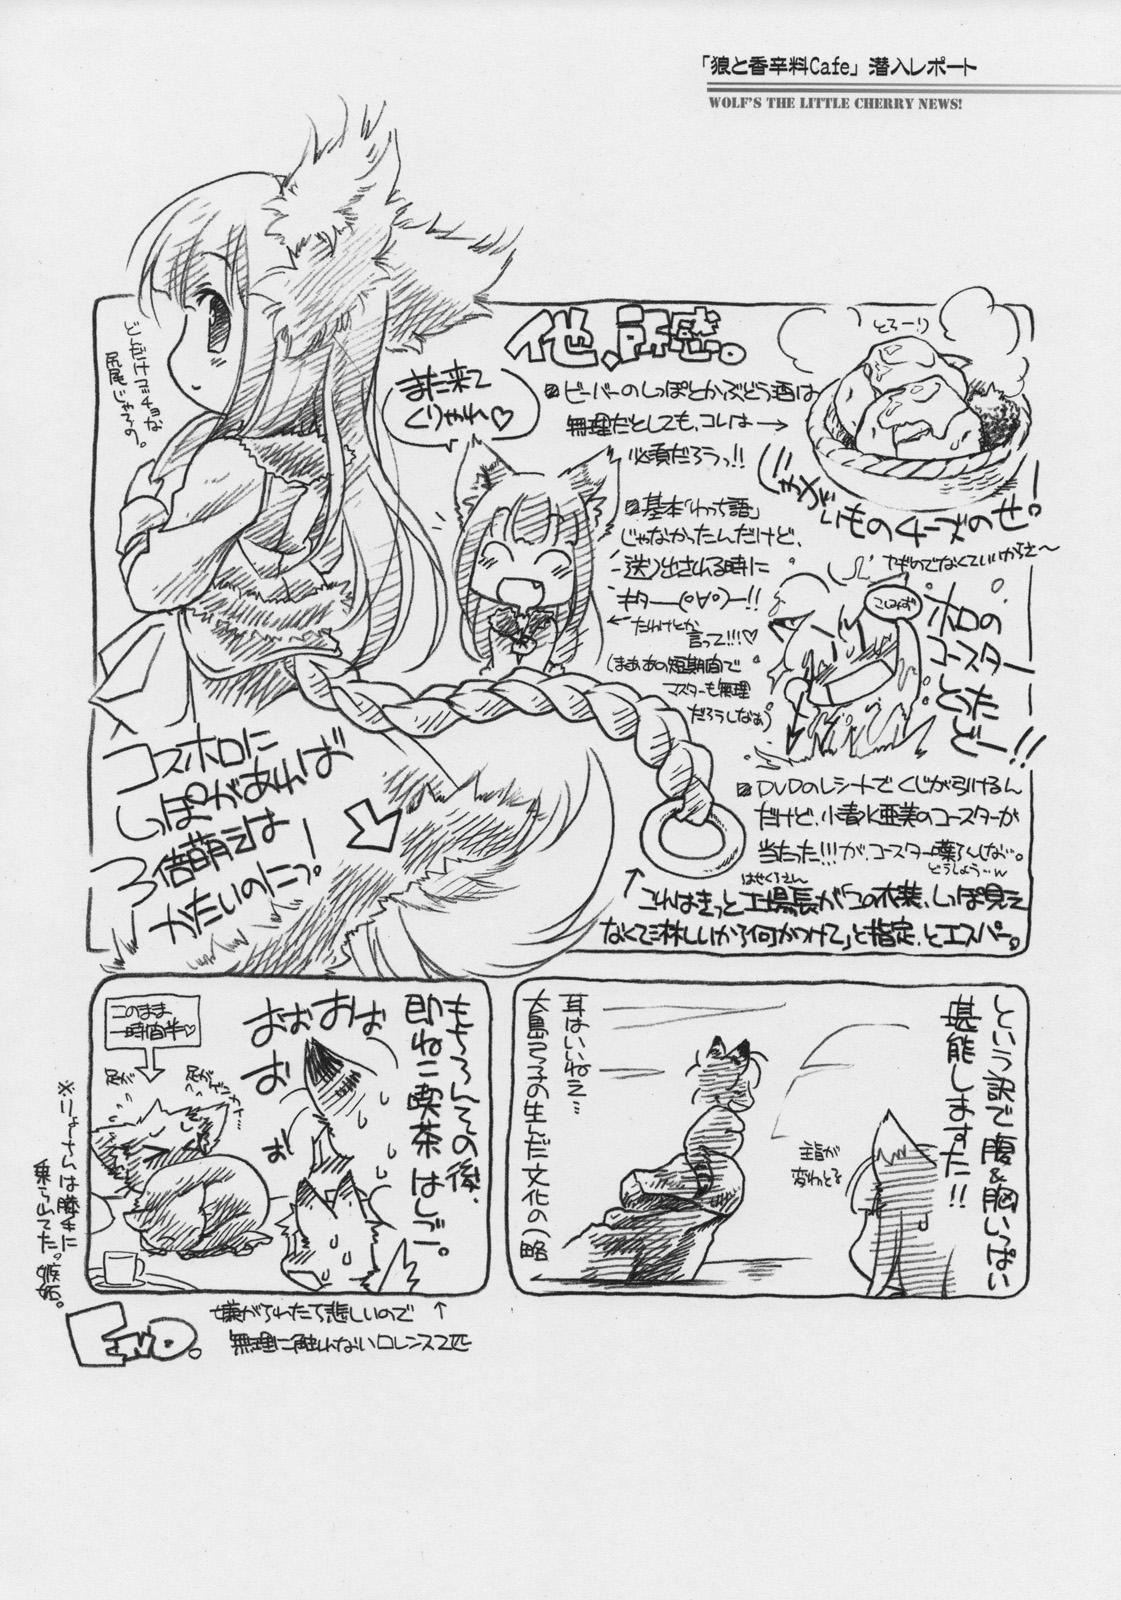 「狼と香辛料Cafe」潜入レポート
WOLF'S THE LITTLE CHERRY NEWS!
他、所感。
とろーり
ビーバーのしっぽとかぶどう酒は
無理だとしても、コレは→
必須だろうっ!!
じゃがいものチーズのせ
ヤギのでなくていいからさ〜
また来て
くりゃれ♡
どんだけマッチョな
尻尾じゃろの。
基本「わっち語」
じゃなかったんだけど、
送り出される時に
キター(°∀°)ー!!
←たわけとか
言って!!!♡
(まぁあの短期間で
マスターも無理
だろうしなぁ)
こしみず
ホロの
コースター
とった
どー!!
DVDのレシートでくじが引けるん
だけど、小清水亜美のコースターが
当たった!!!が、コースター
どうしよう…w
はせくらさん
これはきっと工場長が「この衣装、しっぽ見え
なくて淋しいから何かつけて」と指定、とエスパー。
コスホロに
しっぽがあれば
3倍萌えは
かたいのにっ!
という訳で腹&胸いっぱい
堪能しますた!!
主旨が
変わっとる
耳はいいねえ…
大島弓子の生んだ文化の(略
もちろんその後、
即ねこ喫茶はしご。
おぉおぉ
おぉ
ぉ
このまま
一時間半♡
足が
足が
※りょーさんは膝チに
乗られてた。嫉妬。
嫌がられたら悲しいので↑
無理に触れないロレンス2匹
END.